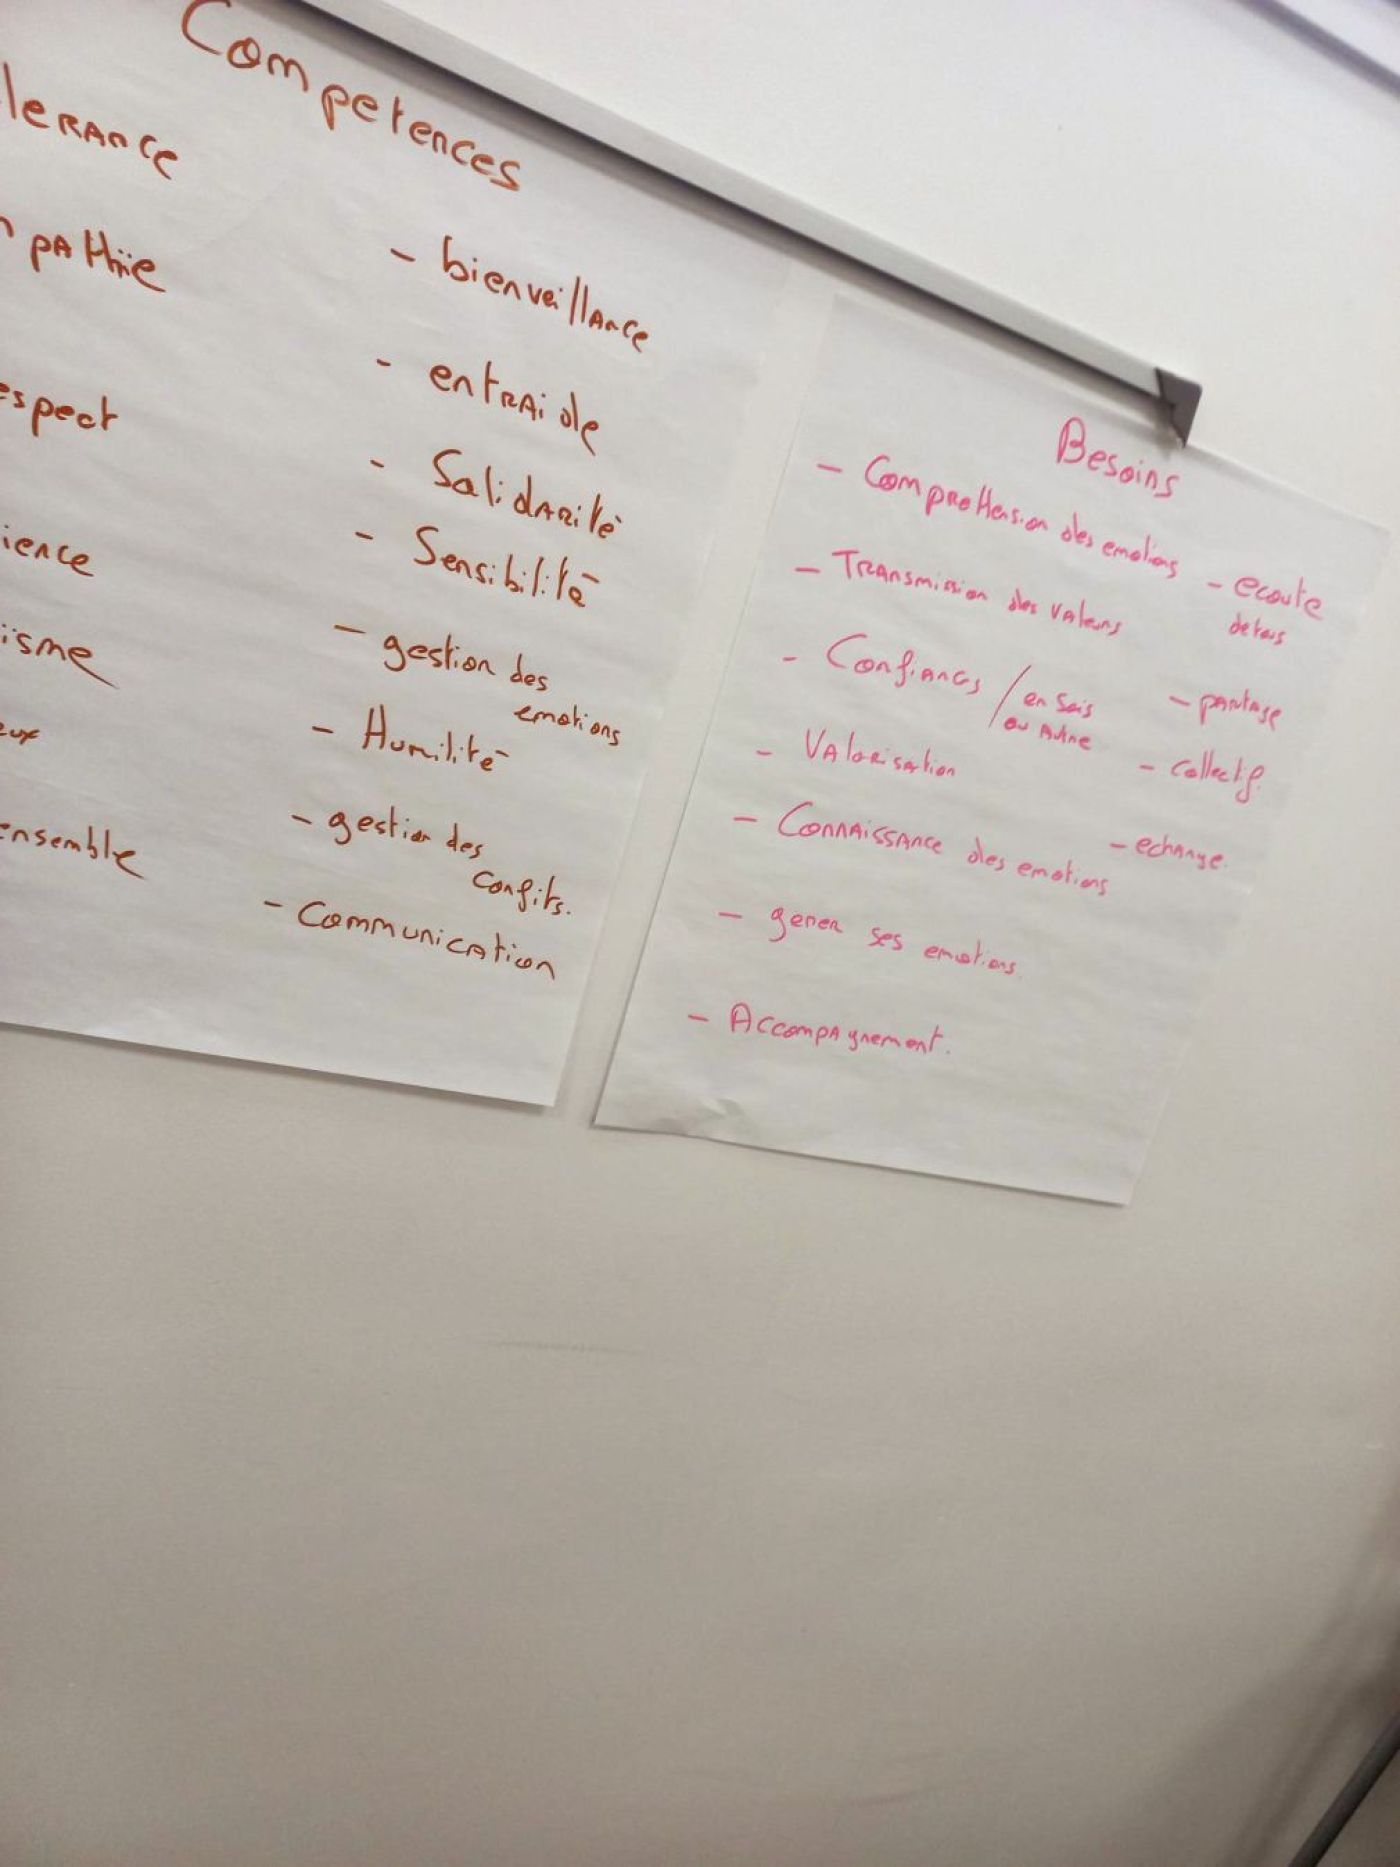 Competences
lerance
pathie
espect
ience
ïsme
eux
ensemble
- bienveillance
- entraide
- Solidarité
- Sensibilité
- gestion des
emotions
- Humilité
- gestion des
confits.
- Communication
Besoins
- Comprehension des emotions
- Transmission des valeurs
- Confiances / en Sois
ou Autre
- Valorisation
- Connaissance des emotions
- gerer ses emotions.
- Accompagnement.
- ecoute
de tous
- partage
- Collectif.
- echange.